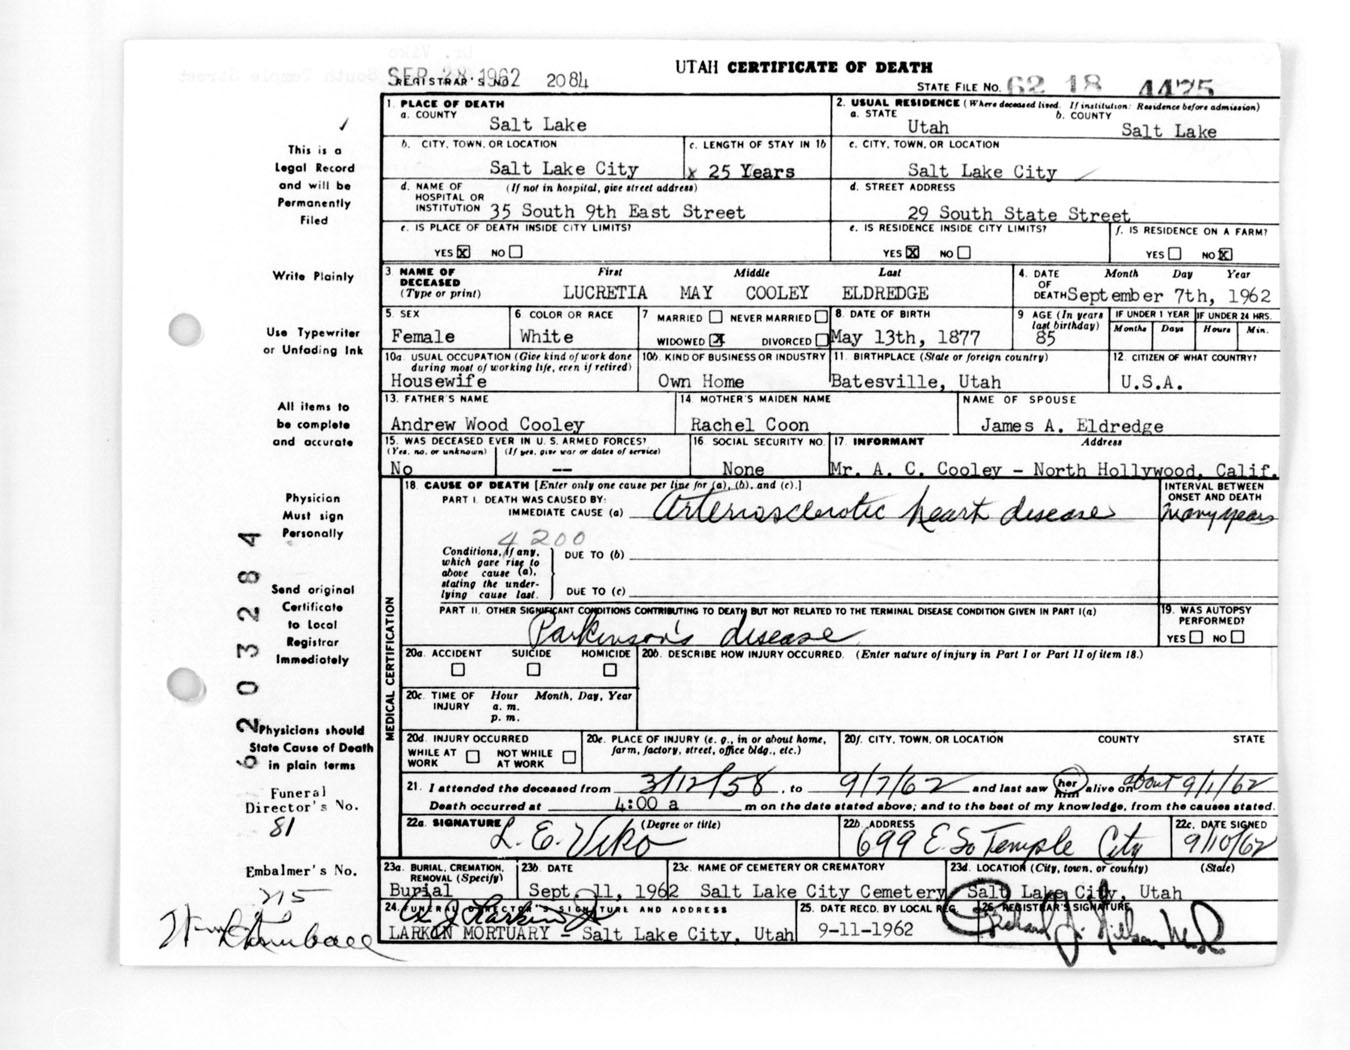 SEP 28 1962
REGISTRAR'S NO. 2084
UTAH CERTIFICATE OF DEATH
STATE FILE NO. 62 18 4425
This is a
Legal Record
and will be
Permanently
Filed
Write Plainly
Use Typewriter
or Unfading Ink
All items to
be complete
and accurate
Physician
Must sign
Personally
Send original
Certificate
to Local
Registrar
Immediately
Physicians should
State Cause of Death
in plain terms
Funeral
Director's No.
81
Embalmer's No.
215
6203284
1. PLACE OF DEATH
a. COUNTY
Salt Lake
2. USUAL RESIDENCE (Where deceased lived. If institution: Residence before admission)
a. STATE
Utah
b. COUNTY
Salt Lake
b. CITY, TOWN, OR LOCATION
Salt Lake City
c. LENGTH OF STAY IN 1b
x 25 Years
c. CITY, TOWN, OR LOCATION
Salt Lake City
d. NAME OF HOSPITAL OR INSTITUTION (If not in hospital, give street address)
35 South 9th East Street
d. STREET ADDRESS
29 South State Street
e. IS PLACE OF DEATH INSIDE CITY LIMITS?
YES X NO
e. IS RESIDENCE INSIDE CITY LIMITS?
YES X NO
f. IS RESIDENCE ON A FARM?
YES NO X
3. NAME OF DECEASED (Type or print)
First Middle Last
LUCRETIA MAY COOLEY ELDREDGE
4. DATE OF DEATH Month Day Year
September 7th, 1962
5. SEX
Female
6 COLOR OR RACE
White
7 MARRIED NEVER MARRIED
WIDOWED X DIVORCED
8. DATE OF BIRTH
May 13th, 1877
9 AGE (In years last birthday)
85
IF UNDER 1 YEAR IF UNDER 24 HRS.
Months Days Hours Min.
10a. USUAL OCCUPATION (Give kind of work done during most of working life, even if retired)
Housewife
10b. KIND OF BUSINESS OR INDUSTRY
Own Home
11. BIRTHPLACE (State or foreign country)
Batesville, Utah
12. CITIZEN OF WHAT COUNTRY?
U.S.A.
13. FATHER'S NAME
Andrew Wood Cooley
14 MOTHER'S MAIDEN NAME
Rachel Coon
NAME OF SPOUSE
James A. Eldredge
15. WAS DECEASED EVER IN U. S. ARMED FORCES?
(Yes, no, or unknown) (If yes, give war or dates of service)
No --
16 SOCIAL SECURITY NO.
None
17. INFORMANT Address
Mr. A. C. Cooley - North Hollywood, Calif.
MEDICAL CERTIFICATION
18. CAUSE OF DEATH [Enter only one cause per line for (a), (b), and (c).]
PART I. DEATH WAS CAUSED BY:
IMMEDIATE CAUSE (a) Arteriosclerotic heart disease
INTERVAL BETWEEN ONSET AND DEATH
many years
4200
Conditions, if any, which gave rise to above cause (a), stating the underlying cause last.
DUE TO (b)
DUE TO (c)
PART II. OTHER SIGNIFICANT CONDITIONS CONTRIBUTING TO DEATH BUT NOT RELATED TO THE TERMINAL DISEASE CONDITION GIVEN IN PART I(a)
Parkinson's disease
19. WAS AUTOPSY PERFORMED?
YES NO
20a. ACCIDENT SUICIDE HOMICIDE
20b. DESCRIBE HOW INJURY OCCURRED. (Enter nature of injury in Part I or Part II of item 18.)
20c. TIME OF INJURY Hour Month, Day, Year
a. m.
p. m.
20d. INJURY OCCURRED
WHILE AT WORK NOT WHILE AT WORK
20e. PLACE OF INJURY (e. g., in or about home, farm, factory, street, office bldg., etc.)
20f. CITY, TOWN, OR LOCATION COUNTY STATE
21. I attended the deceased from 3/12/58, to 9/7/62 and last saw her him alive on about 9/1/62
Death occurred at 4:00 a m on the date stated above; and to the best of my knowledge, from the causes stated.
22a. SIGNATURE (Degree or title)
L. E. Viko
22b. ADDRESS
699 E. So Temple City
22c. DATE SIGNED
9/10/62
23a. BURIAL, CREMATION, REMOVAL (Specify)
Burial
23b DATE
Sept. 11, 1962
23c. NAME OF CEMETERY OR CREMATORY
Salt Lake City Cemetery
23d. LOCATION (City, town, or county) (State)
Salt Lake City, Utah
24. FUNERAL DIRECTOR'S SIGNATURE AND ADDRESS
LARKIN MORTUARY - Salt Lake City, Utah
25. DATE RECD. BY LOCAL REG.
9-11-1962
26. REGISTRAR'S SIGNATURE